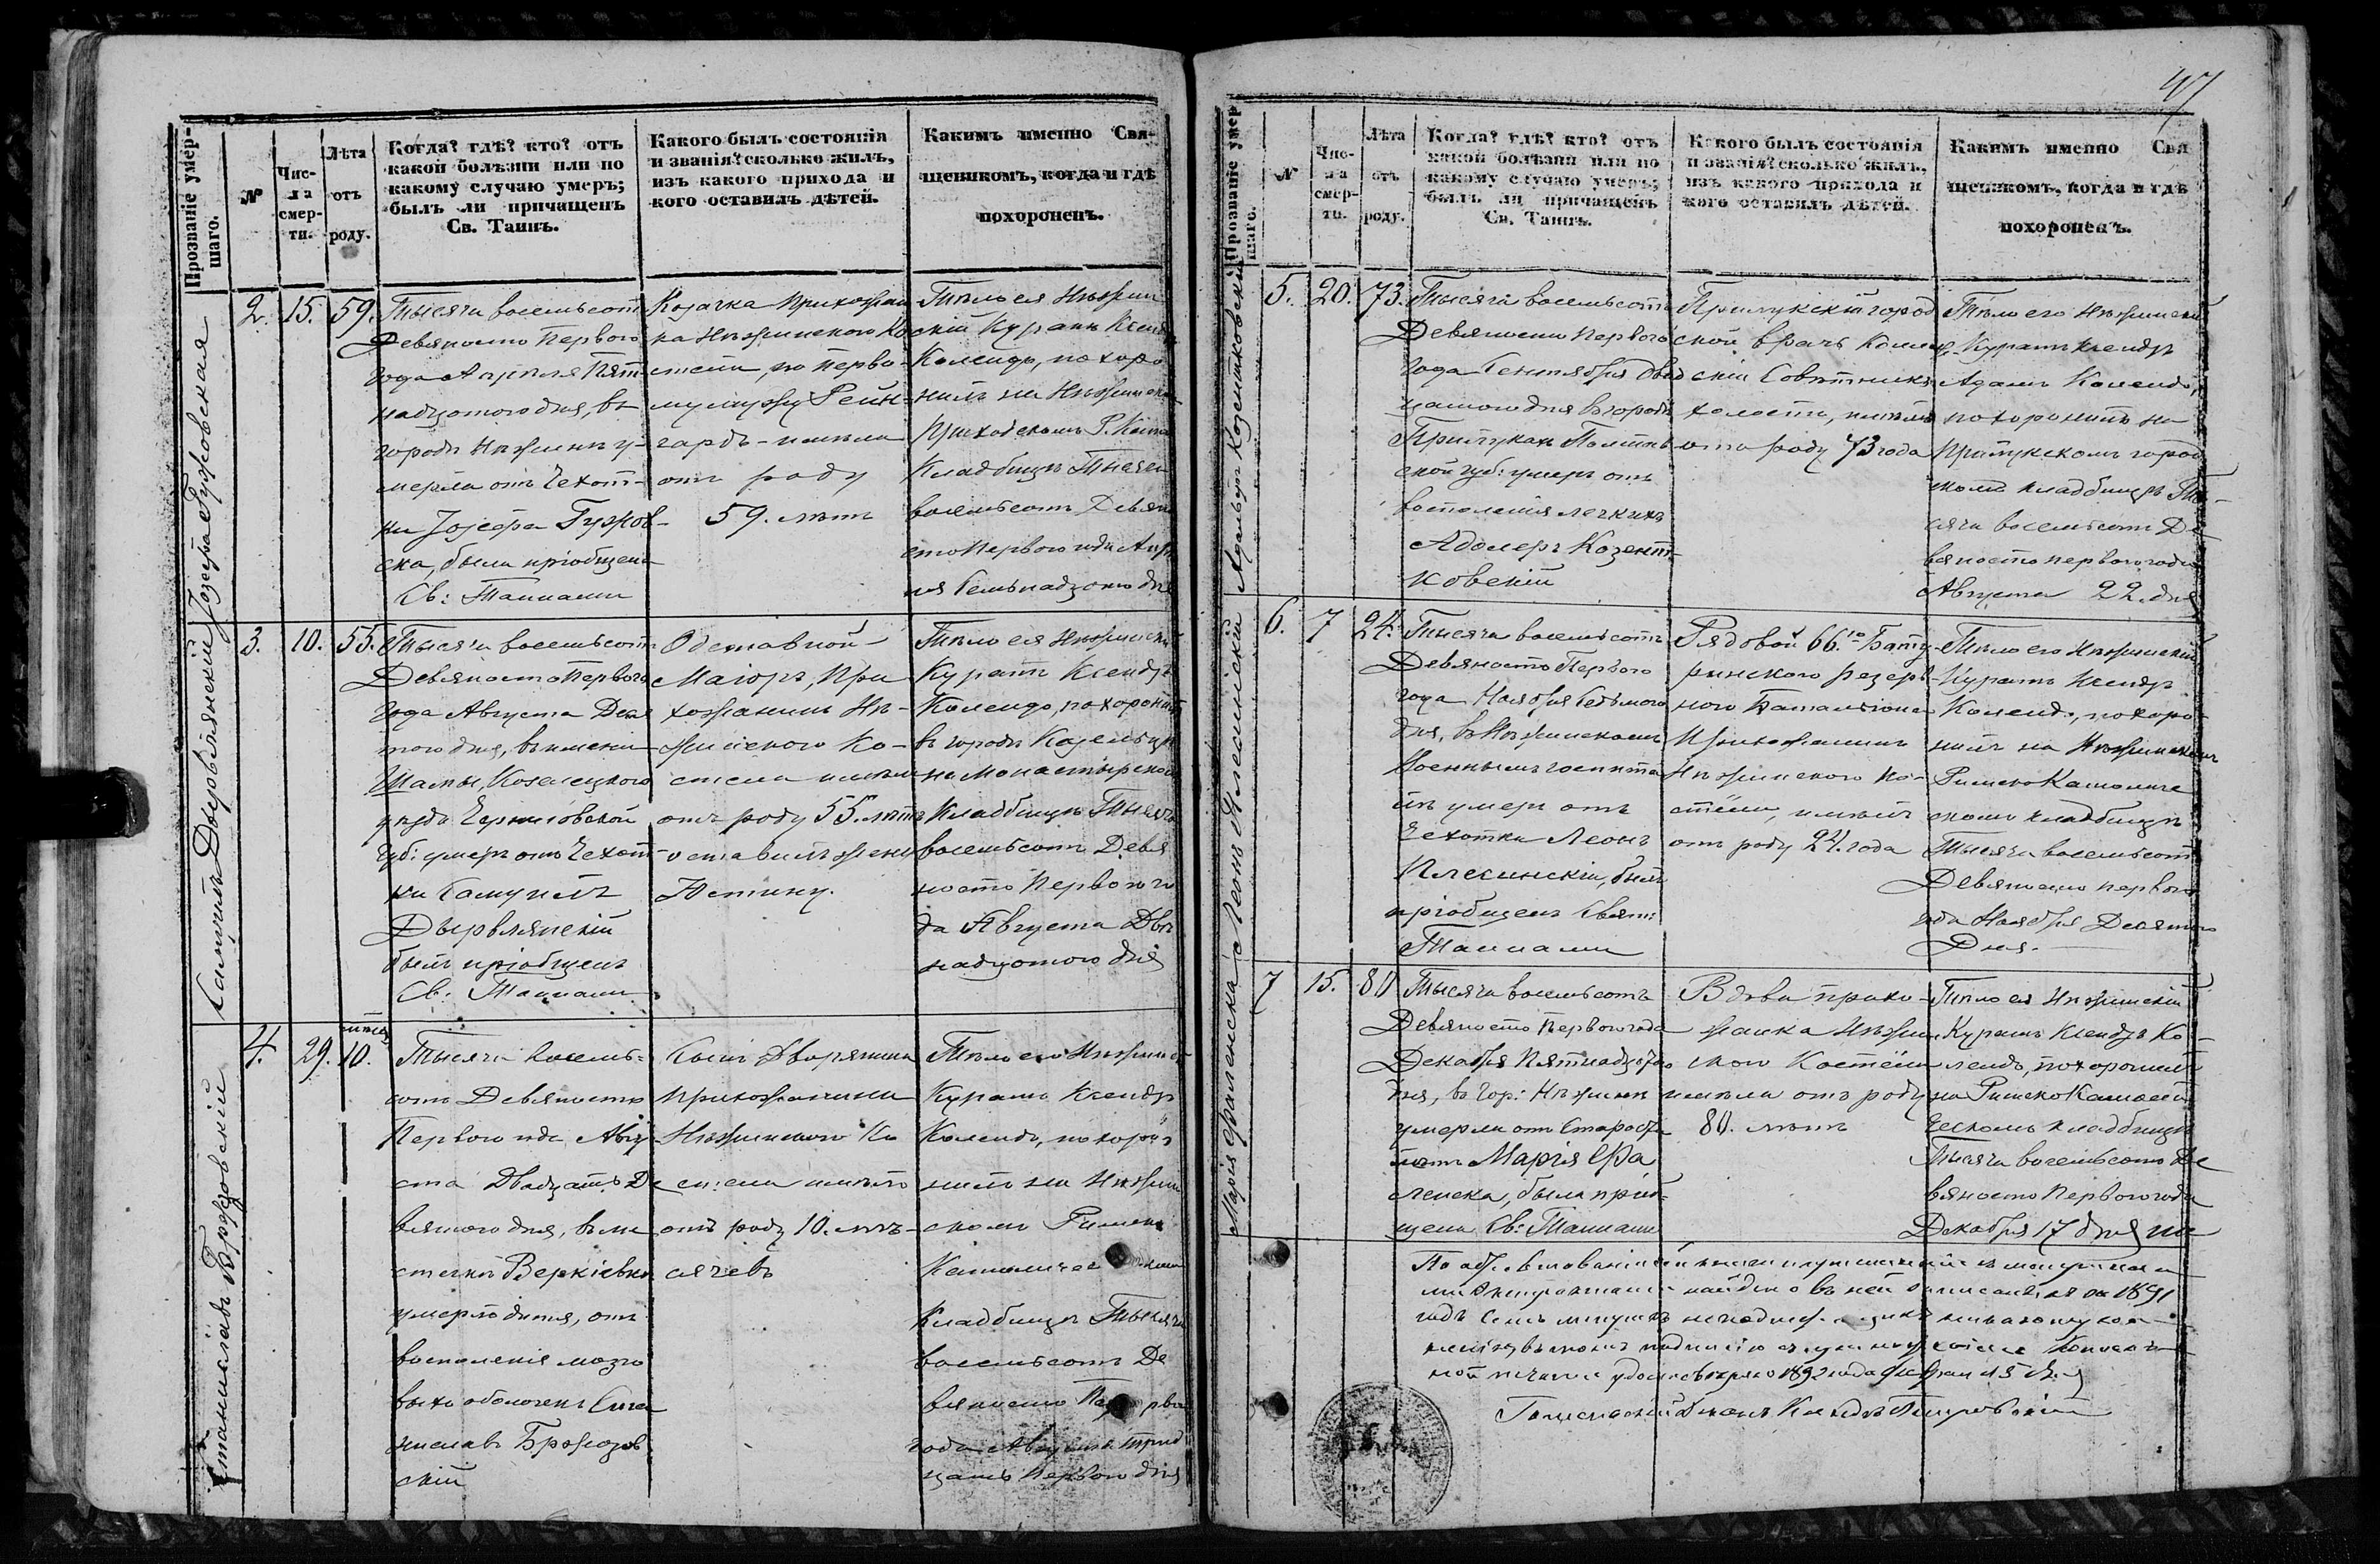 Прозваніе умер-
шаго.
№
Чис-
ла
смер-
ти.
Лѣта
отъ
роду.
Когда? гдѣ? кто? отъ
какой болѣзни или по
какому случаю умеръ;
былъ ли причащенъ
Св. Таинъ.
Какого былъ состоянія
и званія? сколько жилъ,
изъ какого прихода и
кого оставилъ дѣтей.
Какимъ именно Свя-
щенникомъ, когда и гдѣ
похороненъ.
2. 15. 59.
Тысяча восемьсотъ
Девяносто Перваго
года Апрѣля Пят-
надцатого дня, въ
городѣ Нѣжинѣ у-
мерла отъ Чехот-
ки Іозефа Гужов-
ска, была пріобщена
Св: Тайнами
Козачка Прихожан
ка Нѣжинского Ко
стела, по перво-
му мужу Рейн-
гардъ - имѣла
отъ роду
59. лѣтъ
Тѣло ея Нѣжин
скій Куратъ Ксендзъ
Колендо, похоро
нилъ на Нѣжинскомъ
Приходскомъ Р.
Кладбищѣ Тысяча
восемьсотъ Девян
сто Перваго года Апрѣ
ля Семьнадцатого дня
Іозефа Гужовская
3. 10. 55.
Тысяча восемьсотъ
Девяносто Перваго
года Августа Деся
того дня, въ имѣніи
Шамы, Козелецкого
уѣзда Черниговской
Губ: умеръ отъ Чехот-
ки Самуилъ
Дырвянскій
былъ пріобщенъ
Св: Тайнами
Отставной
Маіоръ, При
хожанинъ Нѣ-
жинского Ко-
стела имѣлъ
отъ роду 55. лѣтъ
оставилъ жену
Юстину.
Тѣло ея Нѣжинскій
Куратъ Ксендзъ
Колендо, похоронилъ
въ городѣ Козельцѣ
на Монастырскомъ
Кладбищѣ Тысяча
восемьсотъ Девя
носто Перваго го
да Августа Две
надцатого дня
Самуилъ Дырвлянскій
4. 29. 10.
Тысяча восемь-
сотъ Девяносто
Перваго года Авгу
ста Двадцать Де
вятого дня, въ мѣ
стечкѣ Веркіевкѣ
умерло дитя, отъ
воспаленія мозго
выхъ оболочекъ Ста
ниславъ Бржозов
скій
Сынъ Дворянина
прихожанина
Нѣжинского Ко
стела имѣло
отъ роду 10. мѣ-
сяцевъ
Тѣло его Нѣжинскій
Куратъ Ксендзъ
Колендо, похоро-
нилъ на Нѣжин
скомъ Римско
Кладбищѣ Тысяча
восемьсотъ Де
вяносто
года Августа Трид
цать Перваго дня
Станиславъ Бржозовскій
47
Прозваніе умер
шаго.
№
Чис-
ла
смер-
ти.
Лѣта
отъ
роду.
Когда? гдѣ? кто? отъ
какой болѣзни или по
какому случаю умеръ;
былъ ли причащенъ
Св. Таинъ.
Какого былъ состоянія
и званія? сколько жилъ,
изъ какого прихода и
кого оставилъ дѣтей.
Какимъ именно Свя
щенникомъ, когда и гдѣ
похороненъ.
5. 20. 73.
Тысяча восемьсотъ
Девяносто Перваго
года Сентября Двад
цатого дня въ городѣ
Прилукахъ Полтав
ской губ: умеръ отъ
воспаленія легкихъ
Адольфъ Козент-
ковскій
Прилукскій город
ской врачъ Коллеж
скій Совѣтникъ
холостъ, имѣлъ
отъ роду 73 года
Тѣло его Нѣжинскій
Куратъ Ксендзъ
Адамъ Колендо,
похоронилъ на
Прилукскомъ город
скомъ кладбищѣ Ты-
сяча восемьсотъ Де
вяносто перваго года
Августа 22. дня
Адольфъ Козентковскій
6. 7 24.
Тысяча восемьсотъ
Девяносто Перваго
года Ноября Седьмого
дня, въ Нѣжинскомъ
Военномъ госпита
лѣ умеръ отъ
Чехотки Леонъ
Плесинскій, былъ
пріобщенъ Свят:
Тайнами
Рядовой 66.го Бату
ринского Резерв-
ного Баталіона
Прихожанинъ
Нѣжинского Ко-
стёла, имѣлъ
отъ роду 24. года
Тѣло его Нѣжинскій
Куратъ Ксендзъ
Колендо, похоро-
нилъ на Нѣжинскомъ
Римско Католиче
скомъ кладбищѣ
Тысяча восемьсотъ
Девяносто перваго
года Ноября Девятого
Дня.
Леонъ Плесинскій
7 15. 80
Тысяча восемьсотъ
Девяносто Перваго года
Декабря Пятнадцатаго
дня, въ гор: Нѣжинѣ
умерла отъ Старости
лѣтъ Марія Фа
ленска, была пріоб-
щена Св: Тайнами
Вдова прихо-
жанка Нѣжин
ского Костёла
имѣла отъ роду
80. лѣтъ
Тѣло ея Нѣжинскій
Куратъ Ксендзъ Ко-
лендо, похоронилъ
на Римско Католи
ческомъ кладбищѣ
Тысяча восемьсотъ Де
вяносто Перваго года
Декабря 17 дня
Марія Фаленска
найдено въ ней записанныхъ за 1891
годъ Семь
1892 года Февраля 15 дня
Деканъ Ксендзъ